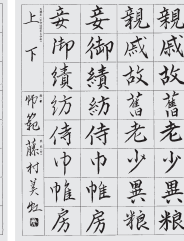 親戚故舊老少異粮
親戚故舊老少異粮
妾御績紡侍巾帷房
妾御績紡侍巾帷房
上下
師範 藤村美